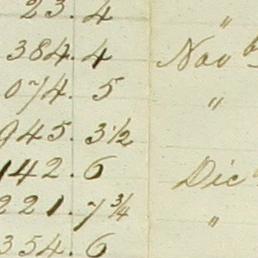 23. 4 "
384. 4 Nov
074. 5 "
945. 3 1/2
142. 6 Dic
221. 7 3/4 "
354. 6